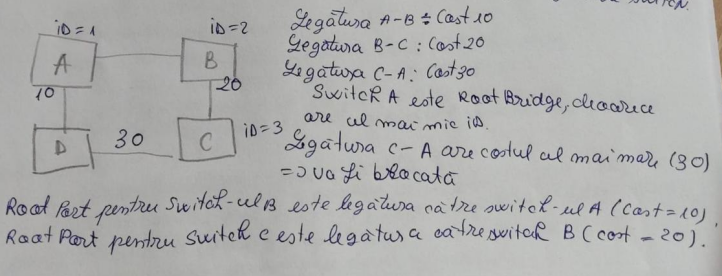 iD=1
iD=2
A
B
10
20
D
30
C
iD=3
Legătura A-B : Cost 10
Legătura B-C : Cost 20
Legătura C-A : Cost 30
Switch A este Root Bridge, deoarece
are al mai mic iD.
Legătura C-A are costul al mai mare (30)
=> va fi blocată
Road Part pentru Switch-ul B este legătura către switch-ul A (Cost=10),
Root Part pentru Switch C este legătura către switch B (cost = 20).